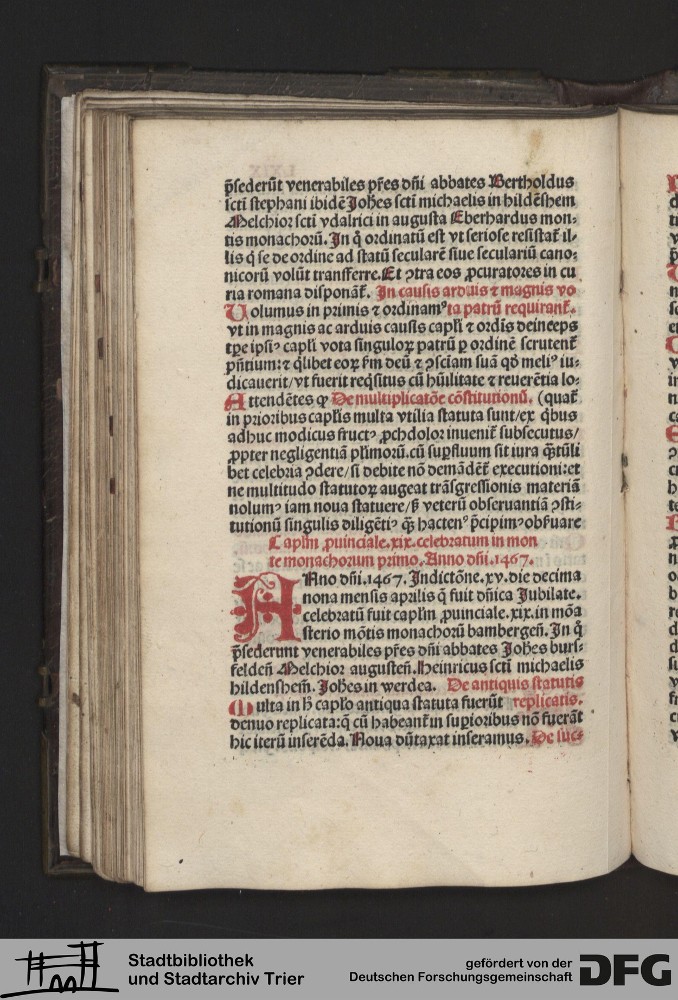 p̄sederūt venerabiles pr̄es dn̄i abbates Bertholdus
scti stephani ibidē Joh̄es scti michaelis in hildēshem
Melchior scti vdalrici in augusta Eberhardus mon⸗
tis monachorū. In q̄ ordinatū est vt seriose resistat᷑ il⸗
lis q̄ se de ordine ad statū secularē siue seculariū cano⸗
nicorū volūt transferre. Et ꝯtra eos ꝓcuratores in cu
ria romana disponāt᷑. In causis arduis ⁊ magnis vo
Uolumus in primis ⁊ ordinamꝰ ta patrū requirant᷑.
vt in magnis ac arduis causis capl̄i ⁊ ordīs deinceps
tpe ipsiꝰ capl̄i vota singuloꝝ patrū ꝑ ordinē scrutent᷑
pn̄tium: ⁊ q̄libet eoꝝ ẜm deū ⁊ ꝯsciam suā qd̄ meliꝰ iu⸗
dicauerit/ vt fuerit req̄situs cū hūilitate ⁊ reuerētia lo⸗
Attendētes ꝙ De multiplicatōe cōstitutionū. (quat᷑
in prioribus capl̄is multa vtilia statuta sunt/ ex q̄bus
adhuc modicus fructꝰ ꝓchdolor inuenit᷑ subsecutus/
ꝓpter negligentiā pl̄imorū. cū suꝑfluum sit iura q̄tūli
bet celebria ꝯdere/ si debite nō demādēt᷑ executioni: et
ne multitudo statutoꝝ augeat trāsgressionis materiā
nolumꝰ iam noua statuere/ ß veterū obseruantiā ꝯsti⸗
tutionū singulis diligētiꝰ q̄ȝ hactenꝰ p̄cipimꝰ obẜuare
Caplm̄ ꝓuinciale .xix. celebratum in mon
te monachorum primo. Anno dn̄i. 1467.
ANno dn̄i. 1467. Indictōne. xv. die decima
nona mensis aprilis q̄ fuit dn̄ica Jubilate.
celebratū fuit caplm̄ ꝓuinciale. xix. in mōa
sterio mōtis monachorū bambergen̄. In q̄
p̄sederunt venerabiles pr̄es dn̄i abbates Joh̄es burs⸗
felden̄ Melchior augusten̄. Heinricus scti michaelis
hildenshem̄. Joh̄es in werdea. De antiquis statutis
Multa in h̄ capl̄o antiqua statuta fuerūt replicatis.
denuo replicata: q̄ cū habeant᷑ in suꝑioribus nō fuerāt
hic iterū inserēda. Noua dūtaxat inseramus. De suc⸗
Stadtbibliothek
und Stadtarchiv Trier
gefördert von der
Deutschen Forschungsgemeinschaft
DFG